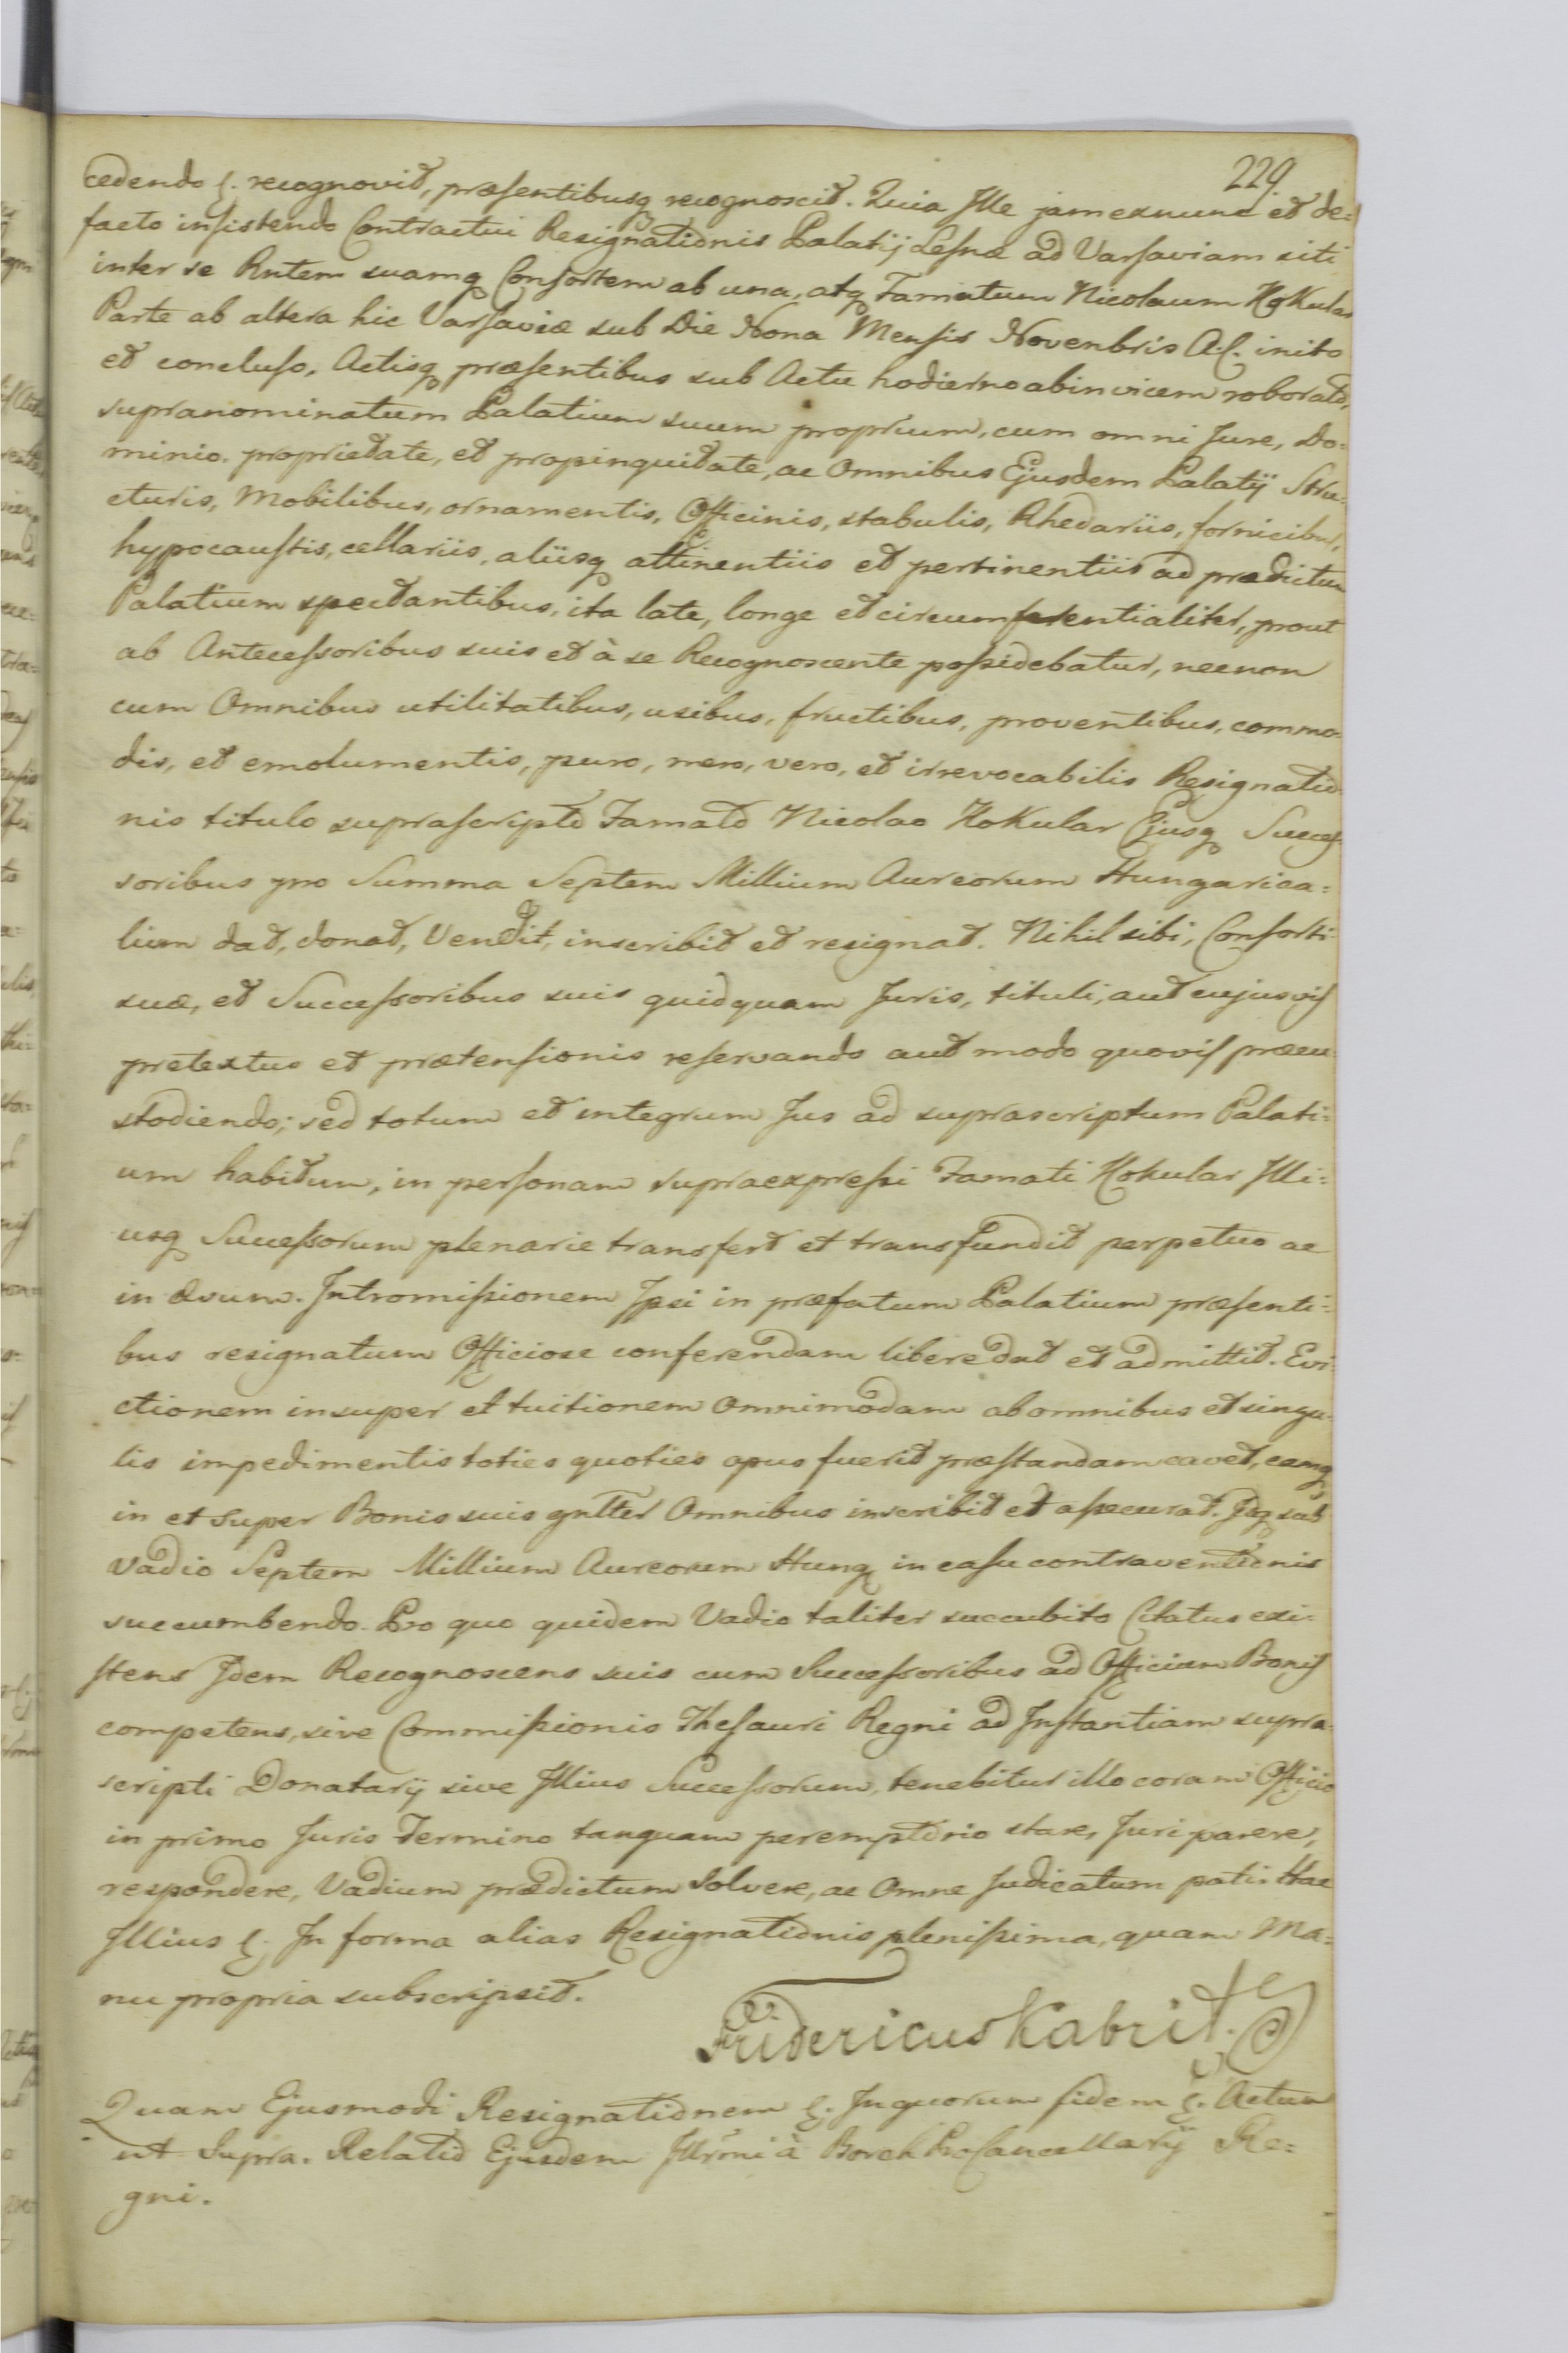 229.
cedendo &. recognovit, præsentibusq recognoscit. Quia Ille jam exnunc et de=
facto insistendo Contractui Resignationis Palatij Lesnæ ad Varsaviam siti
inter se Rntem suamq Consortem ab una, atq Famatum Nicolaum Hokular
Parte ab altera hic Varsaviæ sub Die Nona Mensis Novenbris A.C. inito
et concluso, Actisq præsentibus sub Actu hodierno abinvicem roborato,
supranominatum Palatium suum proprium, cum omni Jure, Do=
minio. proprietate, et propinquitate, ac Omnibus Ejusdem Palatij Stru=
cturis, Mobilibus, ornamentis, Officinis, stabulis, Rhedariis, fornicibus,
hypocaustis, cellariis, aliisq attinentiis et pertinentiis ad prædictum
Palatium spectantibus, ita late, longe et circumferentialiter, prout
ab Antecessoribus suis et à se Recognoscente possidebatur, necnon
cum Omnibus utilitatibus, usibus, fructibus, proventibus, commo=
dis, et emolumentis, puro, mero, vero, et irrevocabilis Resignatio=
nis titulo suprascripto Famato Nicolao Hokular Ejusq Succes=
soribus pro Summa Septem Millium Aureorum Hungarica=
lium dat, donat, Vendit, inscribit et resignat. Nihil sibi, Consorti=
suæ, et Successoribus suis quidquam Juris, tituli, aut cujusvis
pretextus et prætensionis reservando aut modo quovis præcu=
stodiendo; sed totum et integrum Jus ad suprascriptum Palati=
um habitum, in personam supraexpressi Famati Hokular Illi=
usq Successorum plenarie transfert et transfundit perpetuo ac
in ævum. Intromissionem Ipsi in præfatum Palatium præsenti=
bus resignatum Officiose conferendam libere dat et admittit. Evi=
ctionem insuper et tuitionem omnimodam ab omnibus et singu=
lis impedimentis toties quoties opus fuerit præstandam cavet, eamq
in et super Bonis suis gnltter Omnibus inscribit et assecurat. Idq sub
vadio Septem Millium Aureorum Hung in casu contraventionis
succumbendo. Pro quo quidem Vadio taliter succubito Citatus exi=
stens Idem Recognoscens suis cum Successoribus ad Officium Bonis
competens, sive Commissionis Thesauri Regni ad Instantiam supra=
scripti Donatarij sive Illius Successorum, tenebitur illo coram Officio
in primo Juris Termino tanquam peremptorio stare, Juri parere,
respondere, Vadium prædictum solvere, ac Omne Judicatum pati. Hac
Illius &. In forma alias Resignationis plenissima, quam Ma=
nu propria subscripsit.
Fridericus Kabrit.
Quam Ejusmodi Resignationem &. In quorum fidem &. Actum
ut Supra. Relatio Ejusdem Illrmi à Borch ProCancellarij Re=
gni.